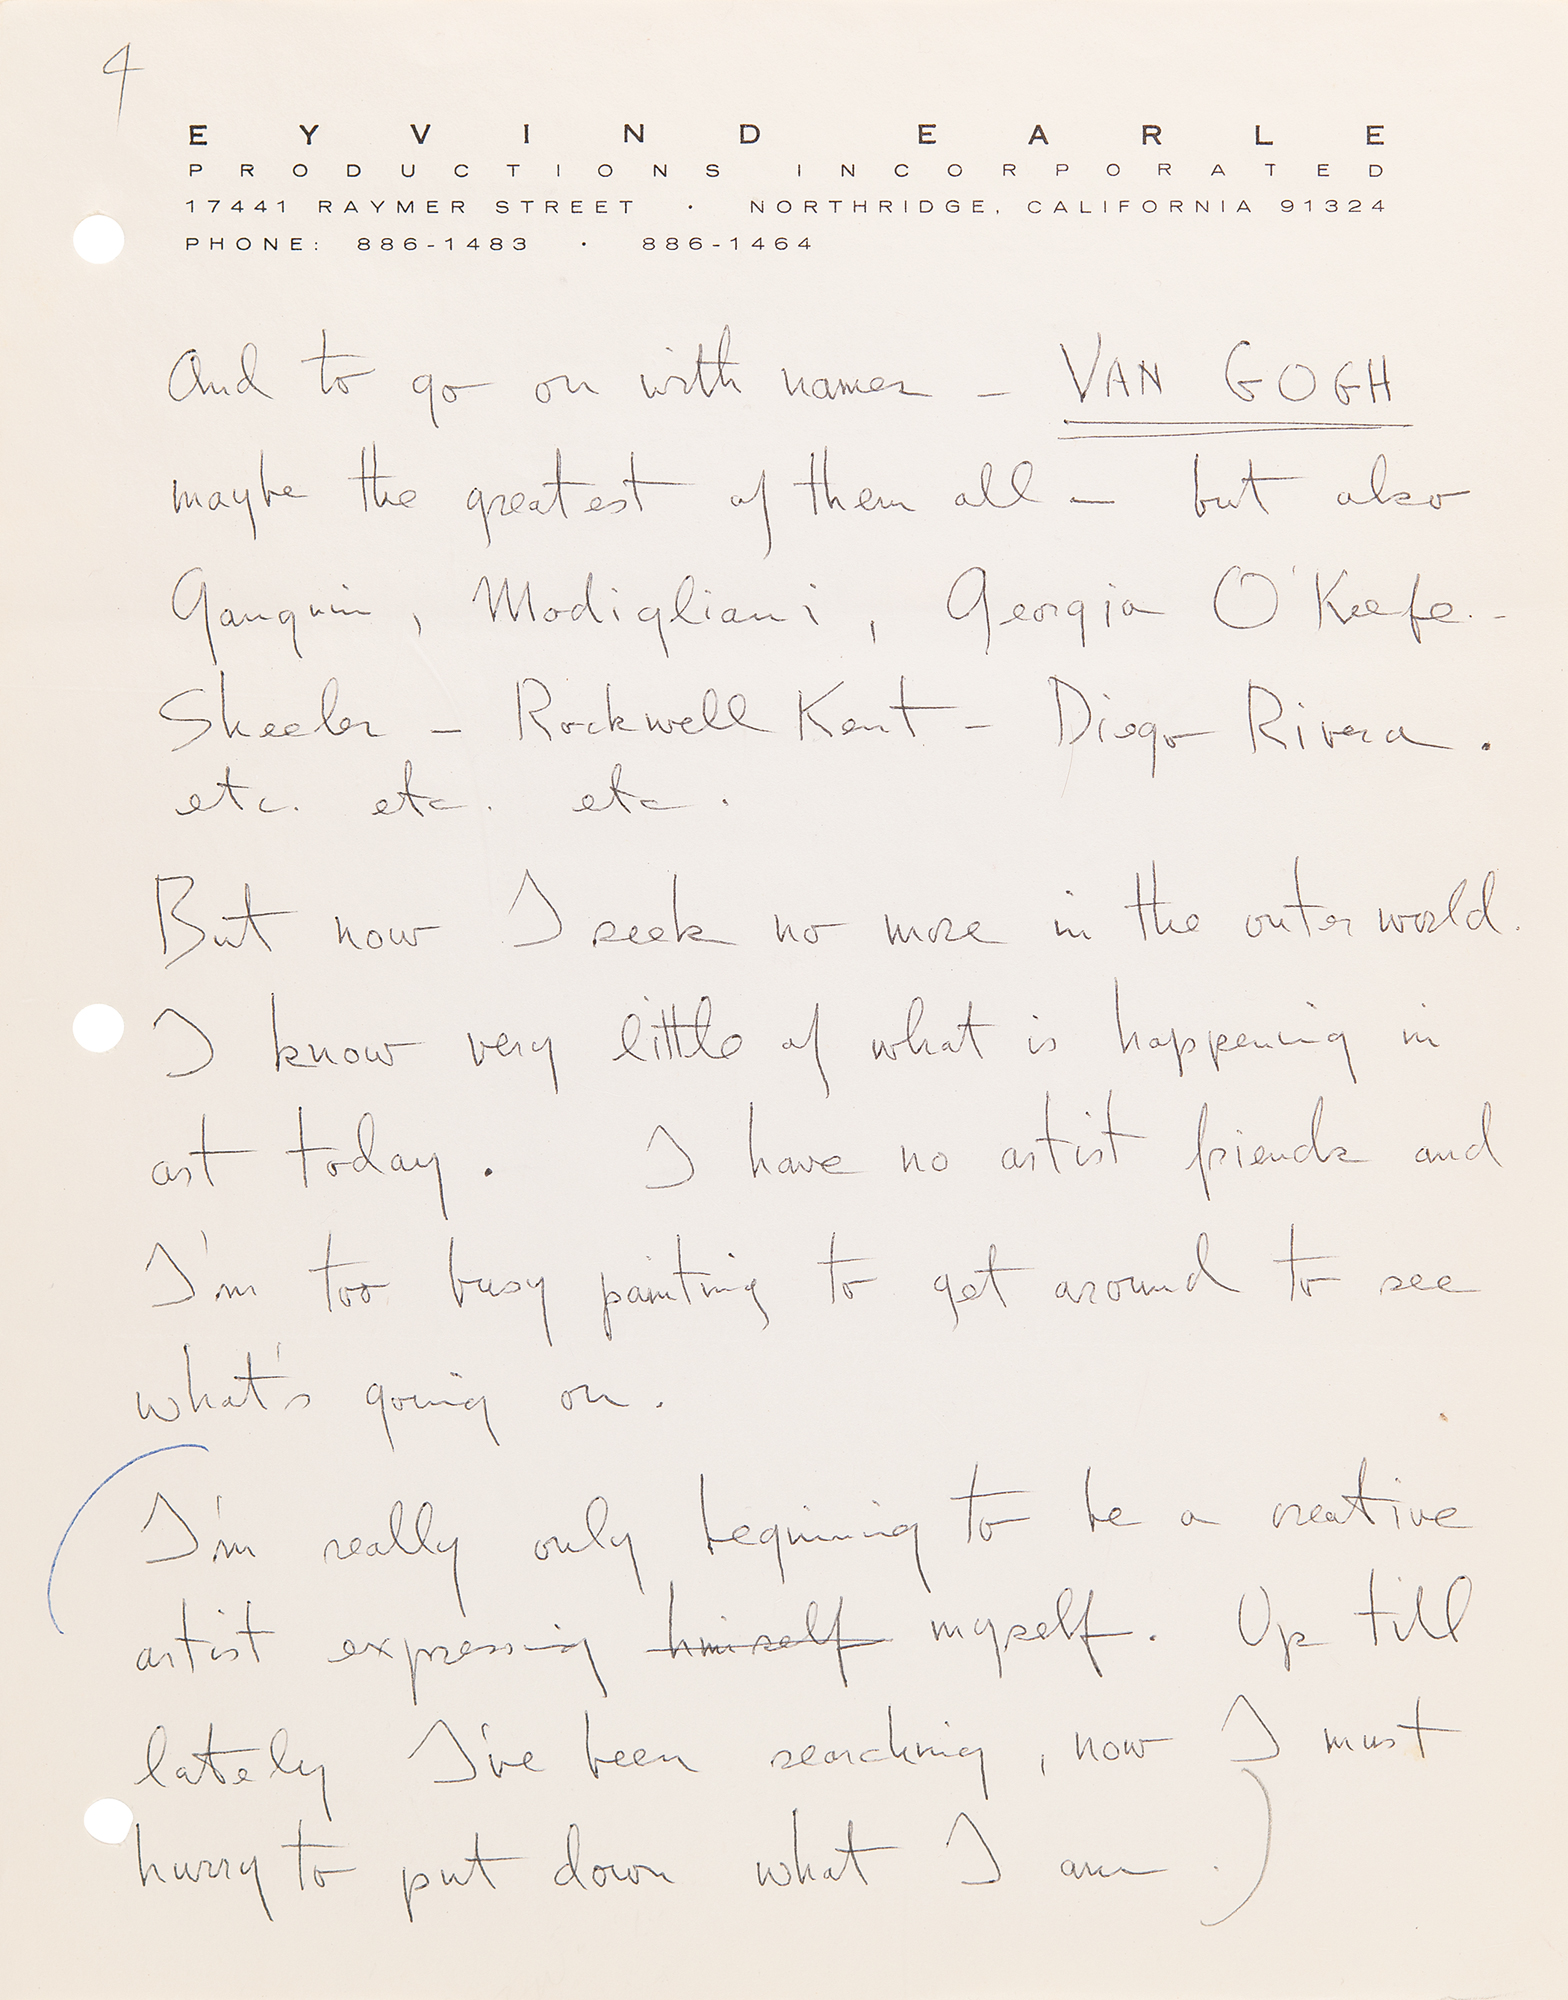 4
EYVIND EARLE
PRODUCTIONS INCORPORATED
17441 RAYMER STREET · NORTHRIDGE, CALIFORNIA 91324
PHONE: 886-1483 · 886-1464
And to go on with names – VAN GOGH
maybe the greatest of them all – but also
Gauguin, Modigliani, Georgia O'Keefe. -
Sheeler – Rockwell Kent – Diego Rivera.
etc. etc. etc.
But now I seek no more in the outer world.
I know very little of what is happening in
art today. I have no artist friends and
I'm too busy painting to get around to see
what's going on.
I'm really only beginning to be a creative
artist expressing himself myself. Up till
lately I've been searching, now I must
hurry to put down what I am.)